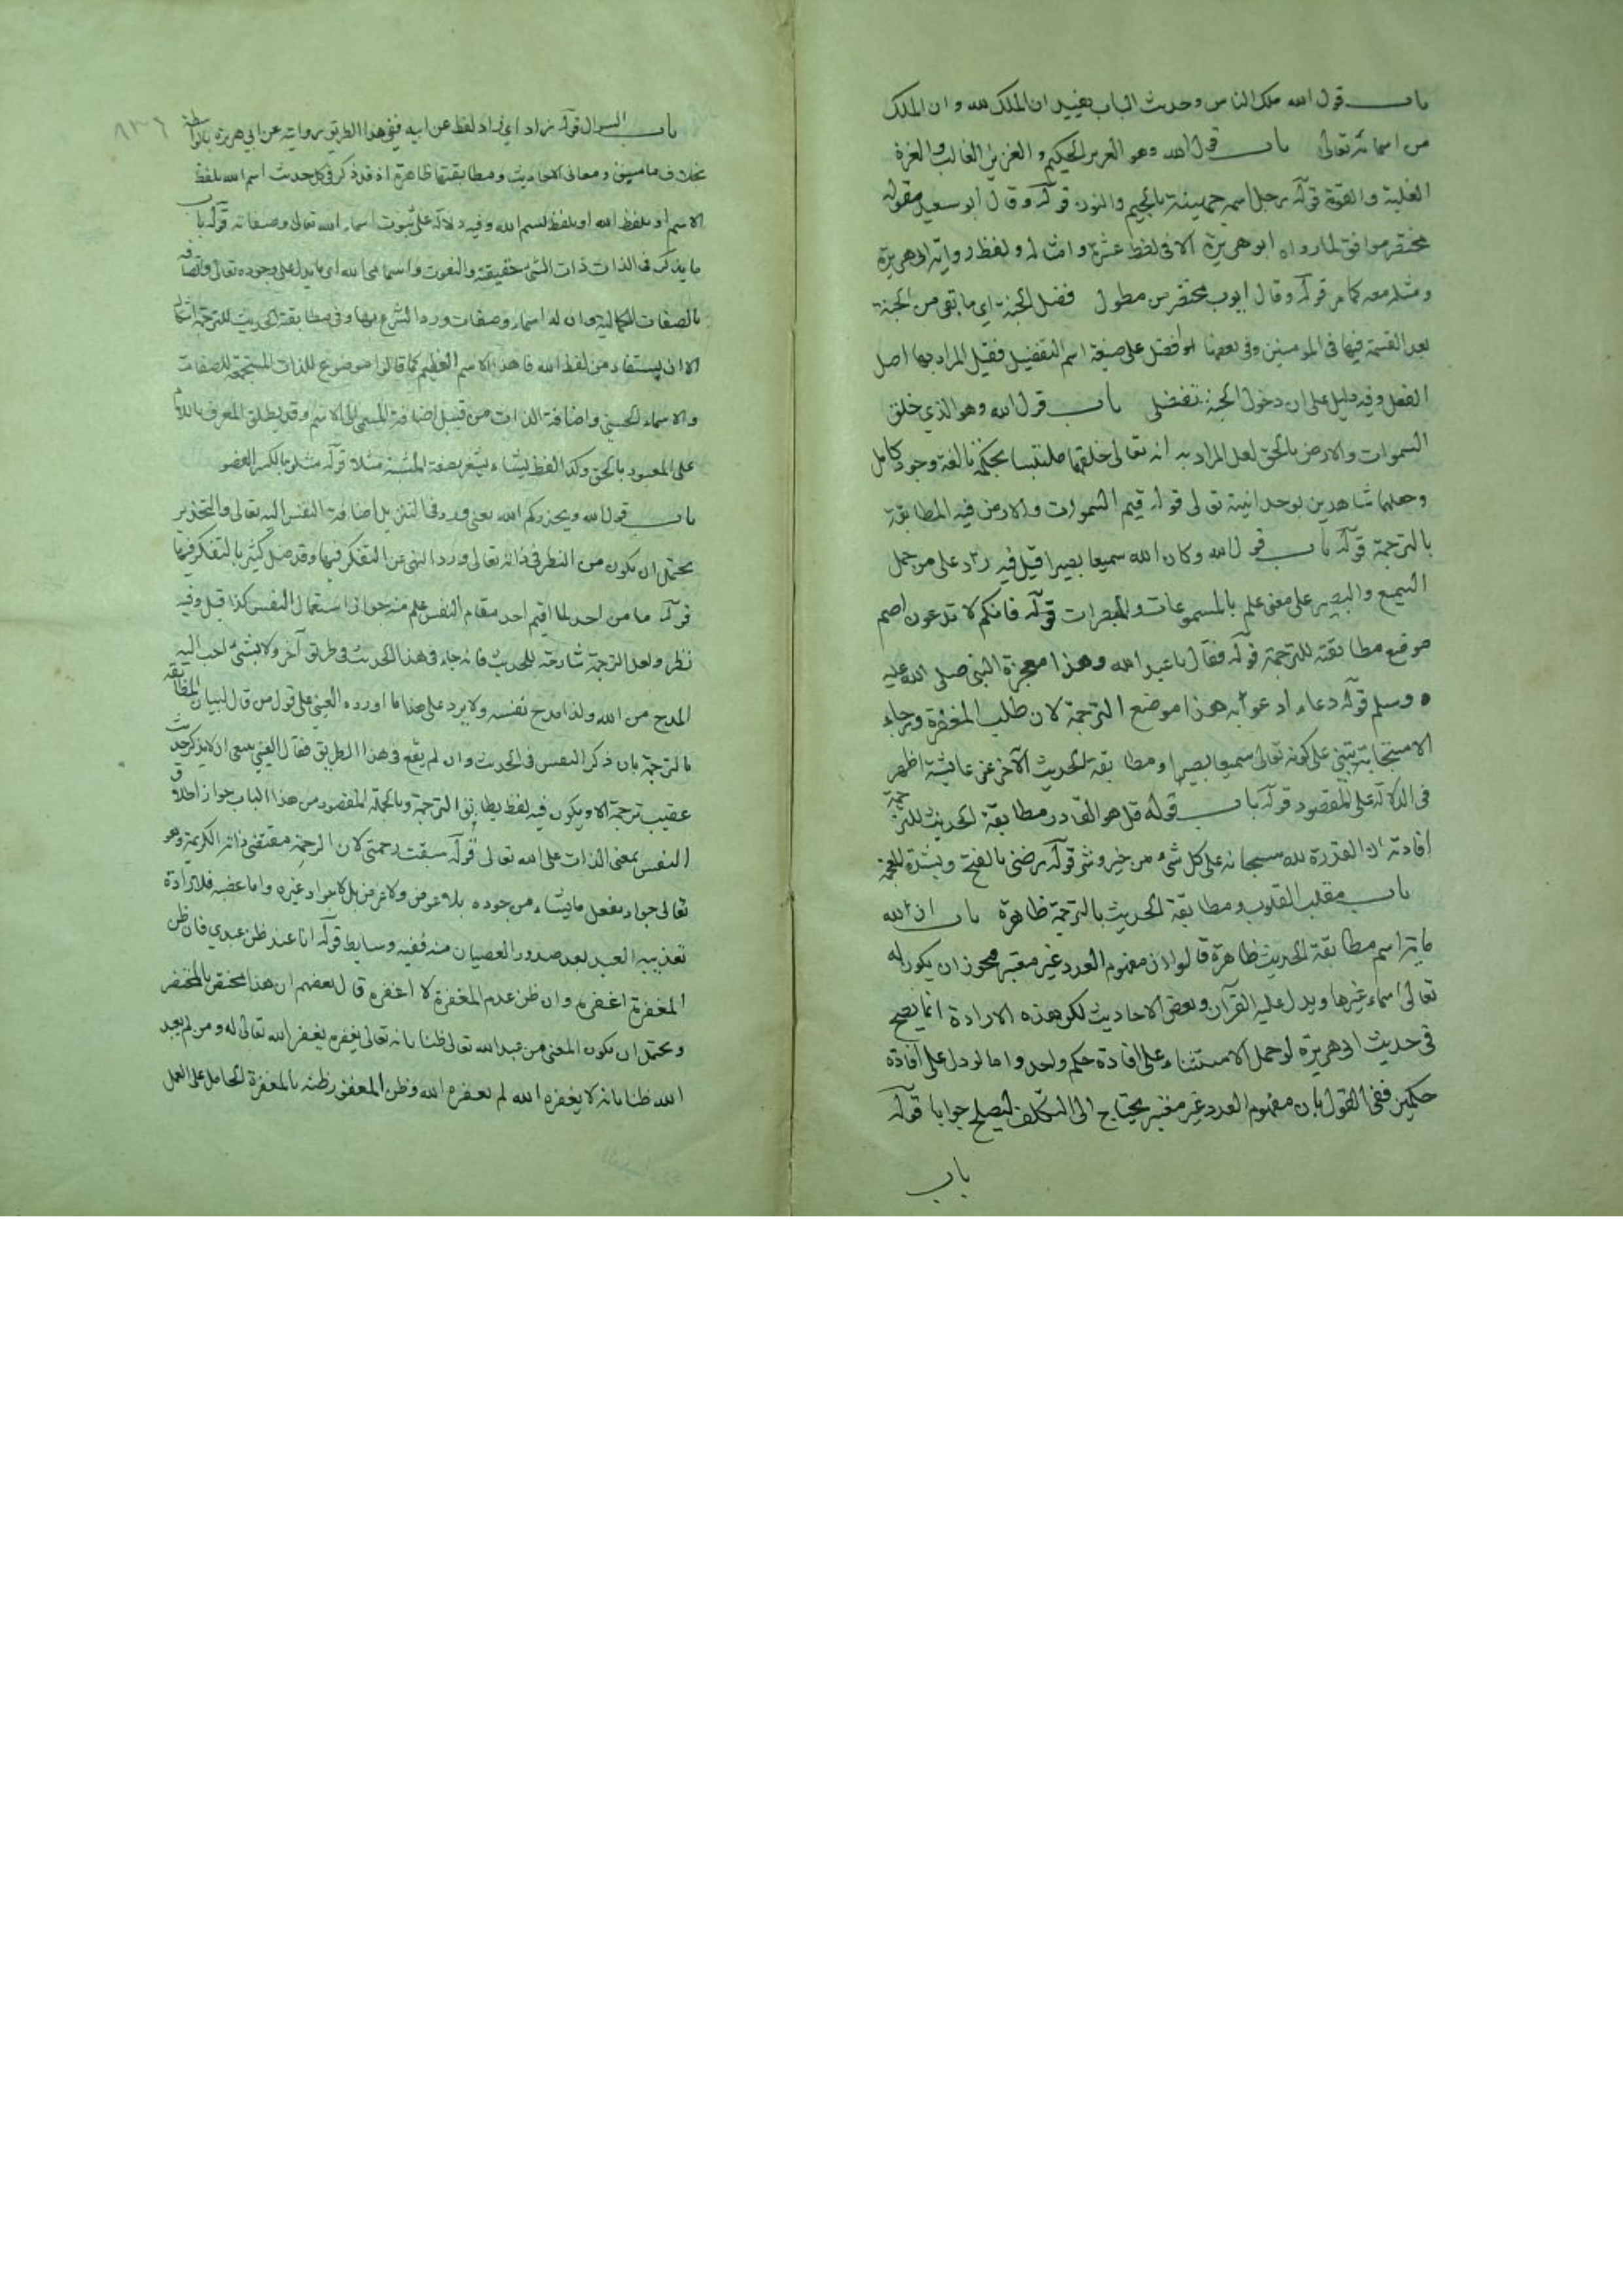 باب قول الله ملك الناس وحديث الباب يفيد ان الملك لله وان الملك
من اسمائه تعالى باب قول الله وهو العزيز الحكيم والعزيز الغالب والعزة
الغلبة والقوة قوله رجل اسمه جهينة بالجيم والنون قوله وقال ابو سعيد مقوله
مختصر موافق لما رواه ابو هريرة الا في لفظ عشرة وامثاله ولفظ رواية ابى هريرة
ومثله معه كما مر قوله وقال ايوب مختصر من مطول فضل الجنة اي ما بقى من الجنة
بعد القسمة فيها فى المومنين وفى بعضها افضل على صيغة اسم التفضيل فقيل المراد بها اصل
الفضل وفيه دليل على ان دخول الجنة تفضلى باب قول الله وهو الذي خلق
السموات والارض بالحق لعل المراد به انه تعالى خلقها ملتبسا بحكم بالغة وجود كامل
وجعلهما شاهدين لوحدانيته تعالى قوله قيم السموات والارض فيه المطابقة
بالترجمة قوله باب قول الله وكان الله سميعا بصيرا قيل فيه رد على من حمل
السميع والبصير على معنى علم بالمسموعات والمبصرات قوله فانكم لا تدعون اصم
موضع مطابقته للترجمة قوله فقال يا عبد الله وهذا معجزة النبي صلى الله عليه
وسلم قوله دعاء ادعو به هذا موضع الترجمة لان طلب المغفرة ورجاء
الاستجابة يبتنى على كونه تعالى سميعا بصيرا ومطابقة الحديث الآخر عن عائشة اظهر
فى الدلالة على المقصود قوله باب قوله قل هو القادر مطابقة الحديث للترجمة
افادته ان القدرة لله سبحانه على كل شيء من خير وشر قوله رضنى بالفتح وبشدة المعجمة
باب مقلب القلوب ومطابقة الحديث بالترجمة ظاهرة باب ان لله
مائة اسم مطابقة الحديث ظاهرة قالوا لان مفهوم العدد غير معتبر فيجوز ان يكون له
تعالى اسماء غيرها ويدل عليه القرآن وبعض الاحاديث لكن هذه الارادة انما يصح
فى حديث ابى هريرة لو حمل الاستثناء على افادة حكم واحد واما لو دل على افادة
حكمين ففى القول بان مفهوم العدد غير معتبر يحتاج الى التكلف ليصلح جوابا قوله
باب
٨٣٦
باب السوال قوله زاد اي زاد لفظ عن ابيه ففى هذا الطريق روايته عن ابي هريرة بالواسطة
بخلاف ما سبق ومعانى الاحاديث ومطابقتها ظاهرة اذ قد ذكر فى كل حديث اسم الله بلفظ
الاسم او بلفظ الله او بلفظ بسم الله وفيه دلالة على ثبوت اسماء الله تعالى وصفاته قوله باب
ما يذكر فى الذات ذات الشئ حقيقته والنعوت واسامى الله اى ما يدل على وجوده تعالى واتصافه
بالصفات الكمالية وان له اسماء وصفات ورد الشرع بها وفى مطابقة الحديث للترجمة
الا ان يستفاد من لفظ الله فان هذا الاسم العظيم كما قالوا موضوع للذات المستجمعة للصفات
والاسماء الحسنى واضافة الذات من قبيل اضافة المسمى الى الاسم وقد يطلق المعرف باللام
على المعبود بالحق وكذا لفظ يشاء يشعر بصفة المشية مثلا قوله شلو بالكسر العضو
باب قول الله ويحذركم الله يعنى ورد فى التنزيل اضافة النفس اليه تعالى والتحذير
يحتمل ان يكون من النظر فى ذاته تعالى وورد النهى عن التفكر فيها وقد ضل كثير بالتفكر فيها
قوله ما من احد لما اقيم احد مقام النفس علم منه جواز استعمال النفس كذا قيل وفيه
نظر ولعل الترجمة شارحة للحديث فانه جاء فى هذا الحديث فى طريق آخر ولا شئ احب اليه
المدح من الله ولذا مدح نفسه ولا يرد على هذا ما اورده العينى على قول من قال لبيان المطابقة
بالترجمة بان ذكر النفس فى الحديث وان لم يقع فى هذا الطريق فقال العينى ينبغى ان لا يذكر حديث
عقيب ترجمة الا ويكون فيه لفظ يطابق الترجمة وبالجملة المقصود من هذا الباب جواز اطلاق
النفس بمعنى الذات على الله تعالى قوله سبقت رحمتى لان الرحمة مقتضى ذاته الكريمة وهو
تعالى جواد يفعل ما يشاء من جوده بلا عوض ولا غرض بل لا جواد غيره واما غضبه فلارادة
تعذيبه العبد بعد صدور العصيان منه ففيه وسايط قوله انا عند ظن عبدي فان ظن
المغفرة اغفره وان ظن عدم المغفرة لا اغفره قال بعضهم ان هذا مختص بالمحتضر
ويحتمل ان يكون المعنى من عبد الله تعالى ظنا بانه تعالى يغفره يغفر الله تعالى له ومن لم يعبد
الله ظنا بانه لا يغفره الله لم يغفره الله وظن المغفرة بالمغفرة الحامل على العمل